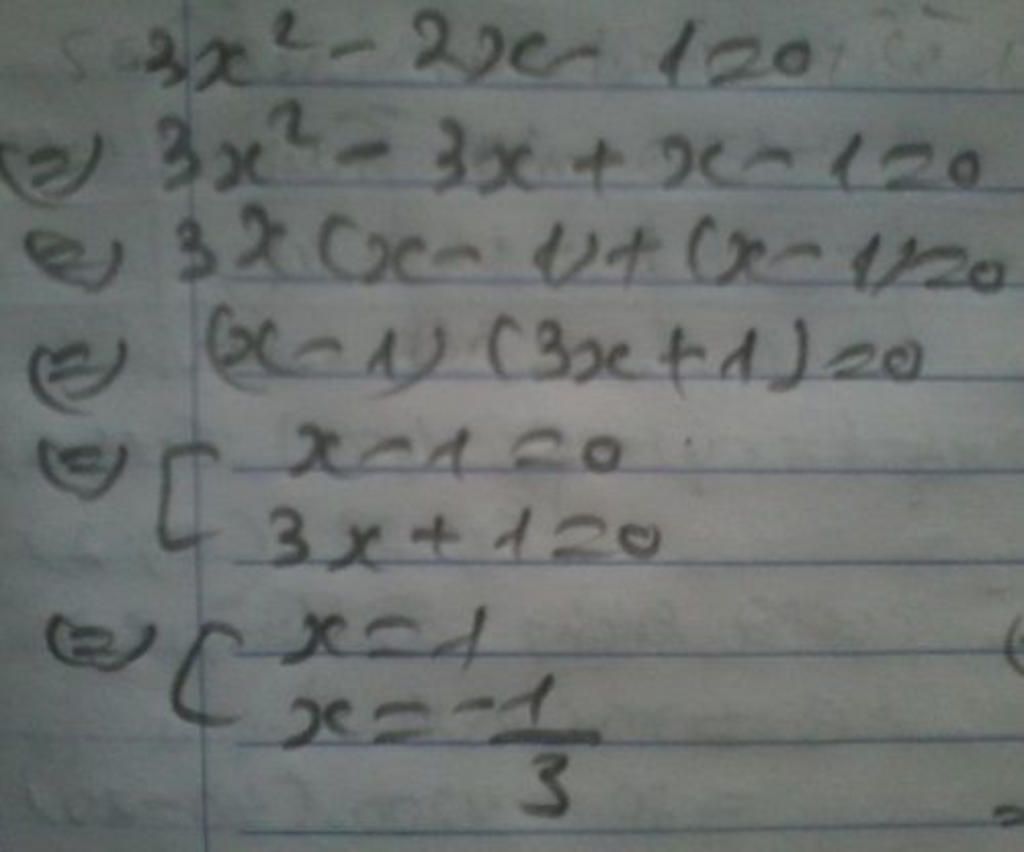 3x² - 2x - 1 = 0
(=) 3x² - 3x + x - 1 = 0
(=) 3x (x - 1) + (x - 1) = 0
(=) (x - 1) (3x + 1) = 0
(=) [ x - 1 = 0
3x + 1 = 0
(=) [ x = 1
x = -1/3